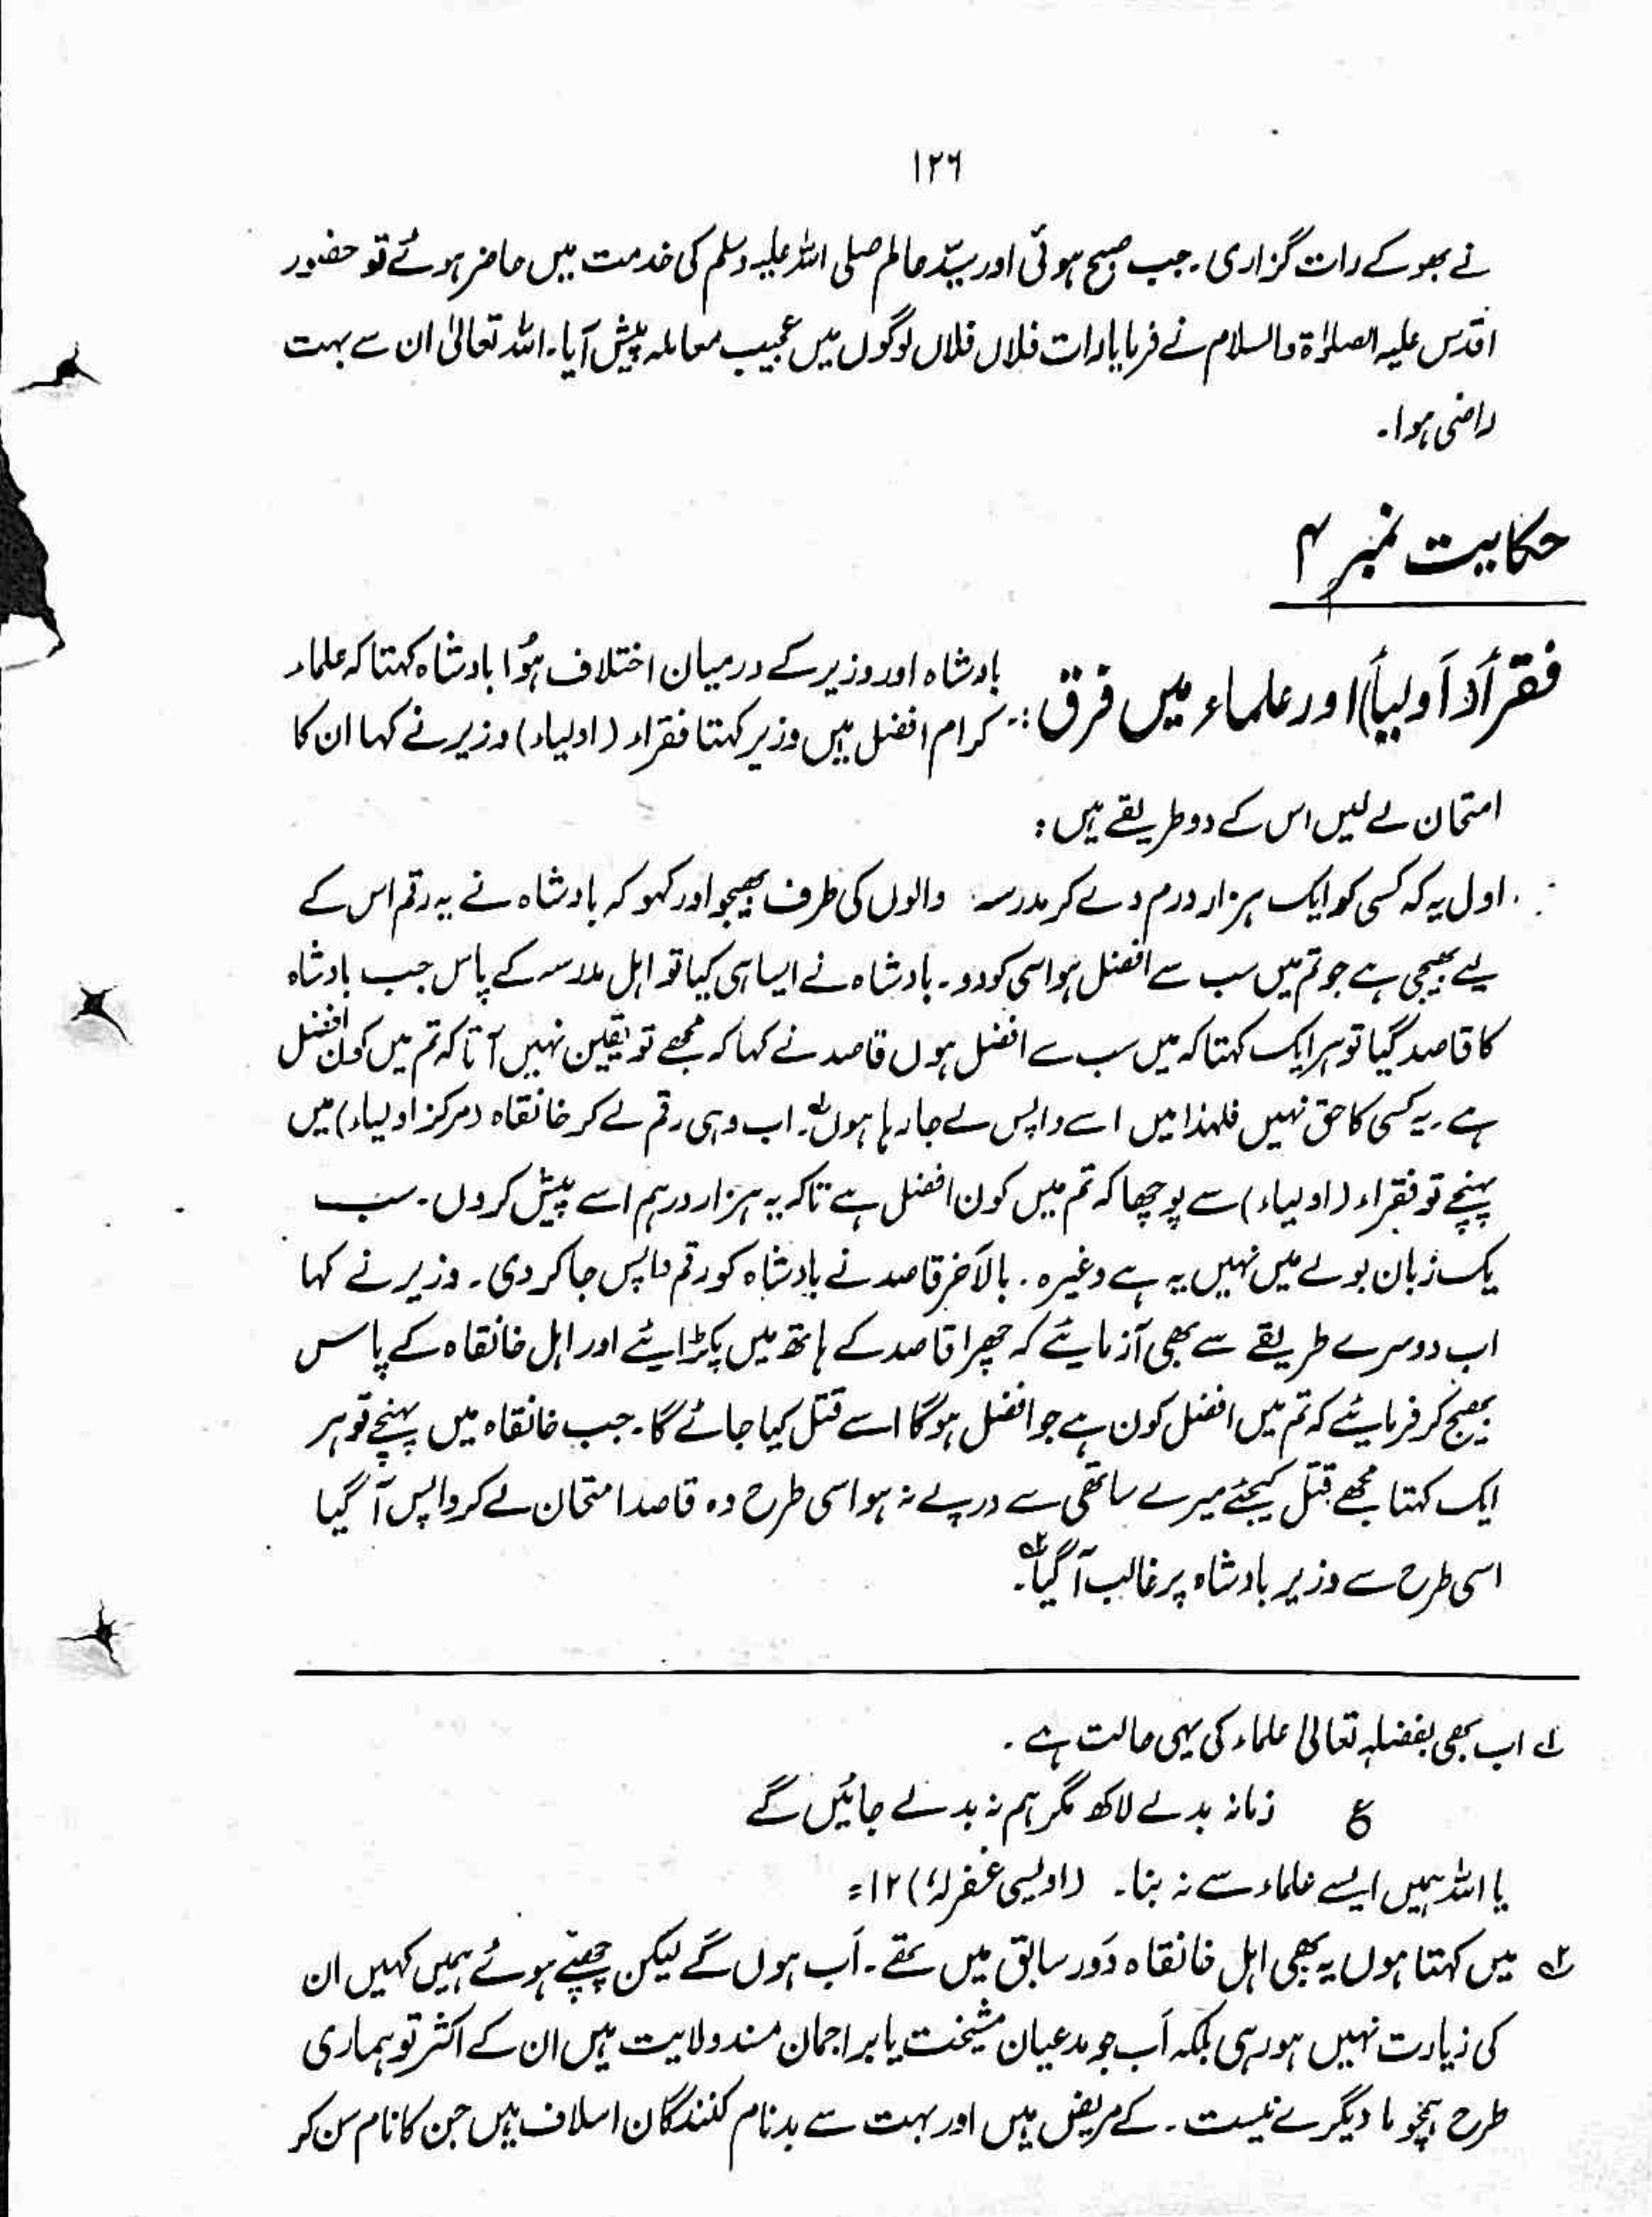 ۱۲۶
نے بھوکے رات گزاری۔ جب صبح ہوئی اور سیّد عالم صلی اللہ علیہ وسلم کی خدمت میں حاضر ہوئے تو حضور
اقدس علیہ الصلوٰۃ والسلام نے فرمایا رات فلاں فلاں لوگوں میں عجیب معاملہ پیش آیا۔ اللہ تعالیٰ ان سے بہت
راضی ہوا۔
حکایت نمبر ۴
فقرأ (اولیأ) اور علماء میں فرق :۔ بادشاہ اور وزیر کے درمیان اختلاف ہُوا بادشاہ کہتا کہ علماء
کرام افضل ہیں وزیر کہتا فقراء (اولیاء) وزیر نے کہا ان کا
امتحان لے لیں اس کے دو طریقے ہیں :
۔ اول یہ کہ کسی کو ایک ہزار درم دے کر مدرسہ والوں کی طرف بھیجو اور کہو کہ بادشاہ نے یہ رقم اس کے
لیے بھیجی ہے جو تم میں سب سے افضل ہو اسی کو دو۔ بادشاہ نے ایسا ہی کیا تو اہل مدرسہ کے پاس جب بادشاہ
کا قاصد گیا تو ہر ایک کہتا کہ میں سب سے افضل ہوں قاصد نے کہا کہ مجھے تو یقین نہیں آتا کہ تم میں کون افضل
ہے۔ یہ کسی کا حق نہیں فلہذا میں اسے واپس لے جا رہا ہوں۱۔ اب وہی رقم لے کر خانقاہ (مرکز اولیاء) میں
پہنچے تو فقراء (اولیاء) سے پوچھا کہ تم میں کون افضل ہے تاکہ یہ ہزار درہم اسے پیش کروں۔ سب
یک زبان بولے میں نہیں یہ ہے وغیرہ۔ بالآخر قاصد نے بادشاہ کو رقم واپس جا کر دی۔ وزیر نے کہا
اب دوسرے طریقے سے بھی آزمایئے کہ چھرا قاصد کے ہاتھ میں پکڑایئے اور اہل خانقاہ کے پاس
بھیج کر فرمایئے کہ تم میں افضل کون ہے جو افضل ہوگا اسے قتل کیا جائے گا۔ جب خانقاہ میں پہنچے تو ہر
ایک کہتا مجھے قتل کیجئے میرے ساتھی سے درپے نہ ہو اسی طرح وہ قاصد امتحان لے کر واپس آ گیا
اسی طرح سے وزیر بادشاہ پر غالب آ گیا۲۔
۱ اب بھی بفضلہٖ تعالیٰ علماء کی یہی حالت ہے ۔
ع زمانہ بدلے لاکھ مگر ہم نہ بدلے جائیں گے
یا اللہ ہمیں ایسے علماء سے نہ بنا۔ (اویسی غفرلہٗ) ۱۲=
۲ میں کہتا ہوں یہ بھی اہل خانقاہ دَور سابق میں تھے۔ اَب ہوں گے لیکن چھپے ہوئے ہمیں کہیں ان
کی زیارت نہیں ہو رہی بلکہ اَب جو مدعیان مشیخت یا براجمان مسند ولایت ہیں ان کے اکثر تو ہماری
طرح ہمچو ما دیگرے نیست۔ کے مریض ہیں اور بہت سے بدنام کنندگان اسلاف ہیں جن کا نام سن کر